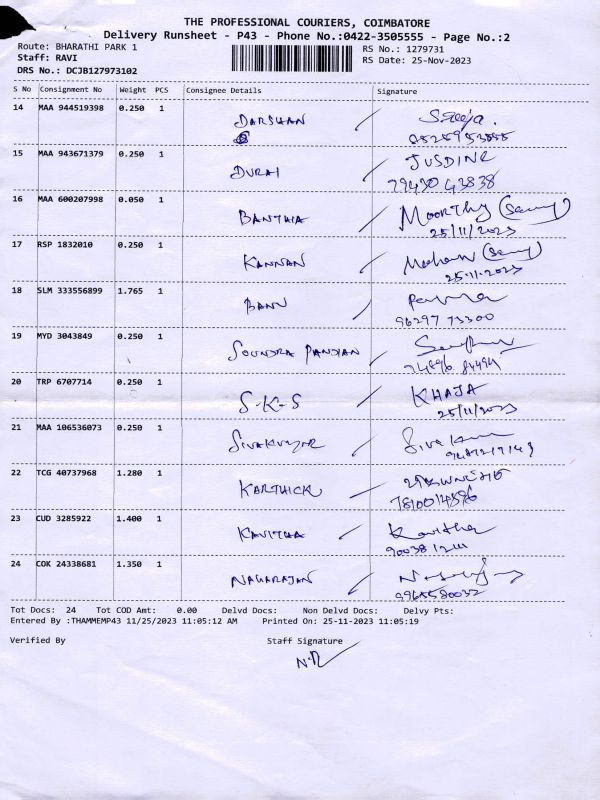 THE PROFESSIONAL COURIERS, COIMBATORE
Delivery Runsheet - P43 - Phone No.:0422-3505555 - Page No.:2
Route: BHARATHI PARK 1
RS No.: 1279731
Staff: RAVI
RS Date: 25-Nov-2023
DRS No.: DCJB127973102
S No Consignment No Weight PCS Consignee Details Signature
14 MAA 944519398 0.250 1 DARSHAN
15 MAA 943671379 0.250 1 DURAI JUSDINE
79430 43838
16 MAA 600207998 0.050 1 BANTHIA MOORTHY
25/11/2023
17 RSP 1832010 0.250 1 KANNAN
25-11-2023
18 SLM 333556899 1.765 1 BANU
96297 73300
19 MYD 3043849 0.250 1 SOUNDRA PANDIAN
20 TRP 6707714 0.250 1 S-K-S KHAJA
25/11/2023
21 MAA 106536073 0.250 1 SIVAKUMAR Sivakum
22 TCG 40737968 1.280 1 KARTHICK
23 CUD 3285922 1.400 1 KAVITHA Kavitha
24 COK 24338681 1.350 1 NAGARAJAN
Tot Docs: 24 Tot COD Amt: 0.00 Delvd Docs: Non Delvd Docs: Delvy Pts:
Entered By :THAMMEMP43 11/25/2023 11:05:12 AM Printed On: 25-11-2023 11:05:19
Verified By Staff Signature